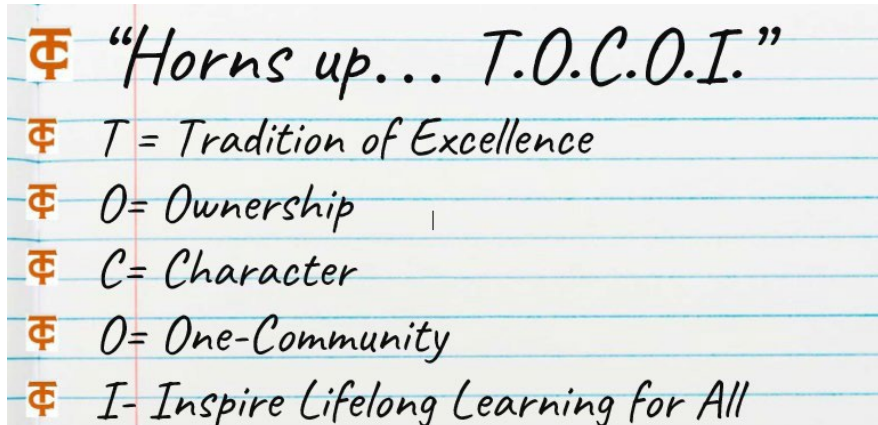 “Horns up... T.O.C.O.I.”
T = Tradition of Excellence
O= Ownership
C= Character
O= One-Community
I- Inspire Lifelong Learning for All